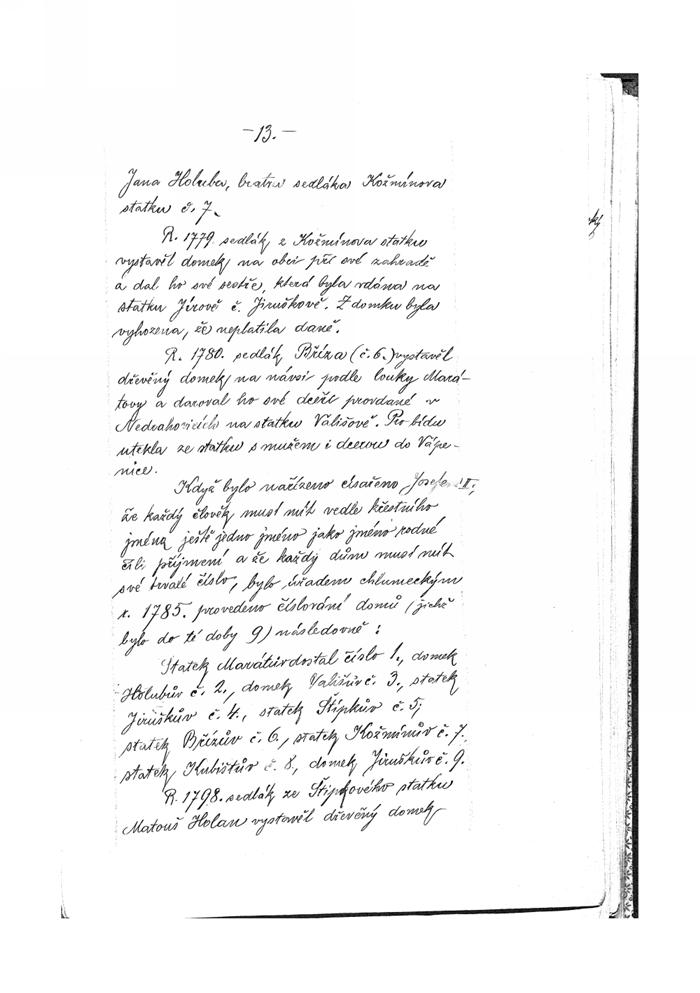 -13.-
Jana Holuba, bratra sedláka Kožmínova
statku č. 7.
R. 1779. sedlák z Kožmínova statku
vystavěl domek na obci při své zahradě
a dal ho své sestře, která byla vdána na
statku Jírově č. Jiruškově. Z domku byla
vyhozena, že neplatila daně.
R. 1780. sedlák Bříza (č. 6.) vystavěl
dřevěný domek na návsi podle louky Mará-
tovy a daroval ho své dceři provdané v
Nedrahovicích na statku Vališově. Pro bídu
utekla ze statku s mužem i dcerou do Vápe-
nice.
Když bylo nařízeno císařem Josefem II.,
že každý člověk musí mít vedle křestního
jména ještě jedno jméno jako jméno rodné
čili příjmení a že každý dům musí mít
své trvalé číslo, bylo úřadem chlumeckým
r. 1785. provedeno číslování domů (jichž
bylo do té doby 9) následovně:
Statek Marátův dostal číslo 1., domek
Holubův č. 2., domek Vališův č. 3., statek
Jiruškův č. 4., statek Štipkův č. 5,
statek Břízův č. 6., statek Kožmínův č. 7.
statek Kubištův č. 8., domek Jiruškův č. 9.
R. 1798. sedlák ze Štipkového statku
Matouš Holan vystavěl dřevěný domek